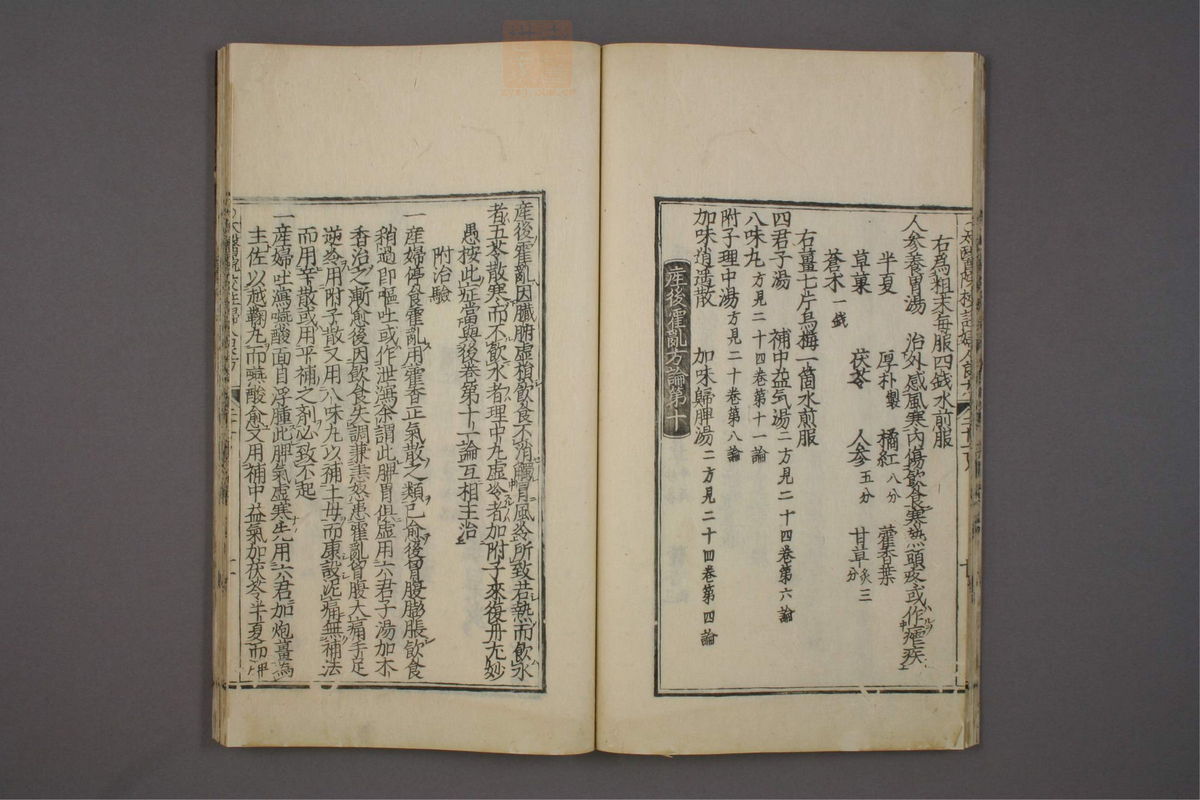 右為粗末每服四錢水煎服
人參養胃湯 治外感風寒內傷飲食寒熱頭疼或作瘧疾
半夏 厚朴製 橘紅八分 藿香葉
草菓 茯苓 人參五分 甘草炙三分
蒼朮一錢
右薑七片烏梅一箇水煎服
四君子湯 補中益気湯二方見二十四卷第六論
八味丸方見二十四卷第十一論
附子理中湯方見二十卷第八論
加味逍遥散 加味歸脾湯二方見二十四卷第四論
産後霍亂方論第十
産後霍亂因臟腑虛損飲食不消觸冒風冷所致若熱而飲水
者五苓散寒而不飲水者理中丸虛冷者加附子來復丹尤妙
愚按此症當與後卷第十一論互相主治
附治驗
一産婦停食霍亂用藿香正氣散之類已愈後胃腹膨脹飲食
稍過即嘔吐或作泄瀉余謂此脾胃俱虛用六君子湯加木
香治之漸愈後因飲食失調兼恚怒患霍亂胃腹大痛手足
逆冷用附子散又用八味丸以補土母而康設泥痛無補法
而用辛散或用平補之剤必致不起
一産婦吐瀉嚥酸面目浮腫此脾氣虛寒先用六君加炮薑為
主佐以越鞠丸而嚥酸愈又用補中益氣加茯苓半夏而脾